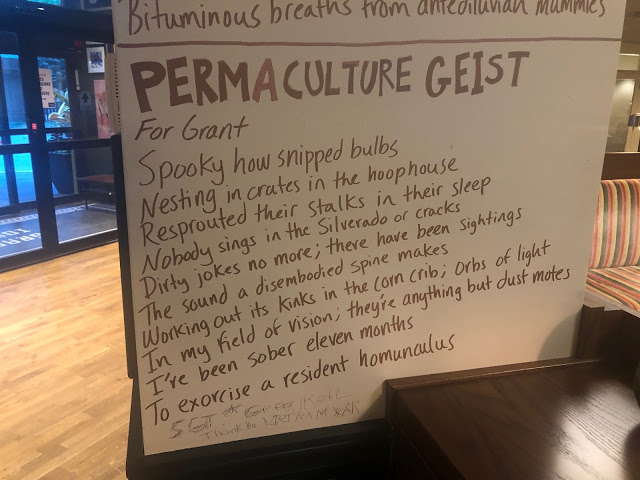 Bituminous breaths from antediluvian mummies
PERMACULTURE GEIST
For Grant
Spooky how snipped bulbs
Nesting in crates in the hoophouse
Resprouted their stalks in their sleep
Nobody sings in the Silverado or cracks
Dirty jokes no more; there have been sightings
The sound a disembodied spine makes
Working out its kinks in the corn crib; Orbs of light
In my field of vision; they're anything but dust motes
I've been sober eleven months
To exorcise a resident homunculus